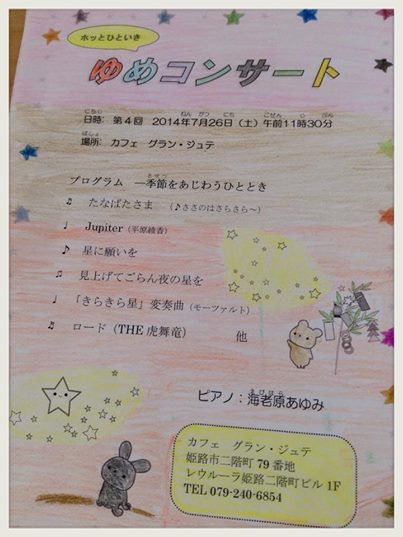 ホッとひといき
ゆめコンサート
日時: 第4回 2014年7月26日（土）午前11時30分
場所: カフェ グラン・ジュテ
プログラム ―季節をあじわうひととき
♬ たなばたさま （♪ささのはさらさら～）
♩ Jupiter（平原綾香）
♪ 星に願いを
♬ 見上げてごらん夜の星を
♩ 「きらきら星」変奏曲（モーツァルト）
♬ ロード（THE 虎舞竜） 他
ピアノ：海老原あゆみ
カフェ グラン・ジュテ
姫路市二階町 79 番地
レウルーラ姫路二階町ビル 1F
TEL 079-240-6854